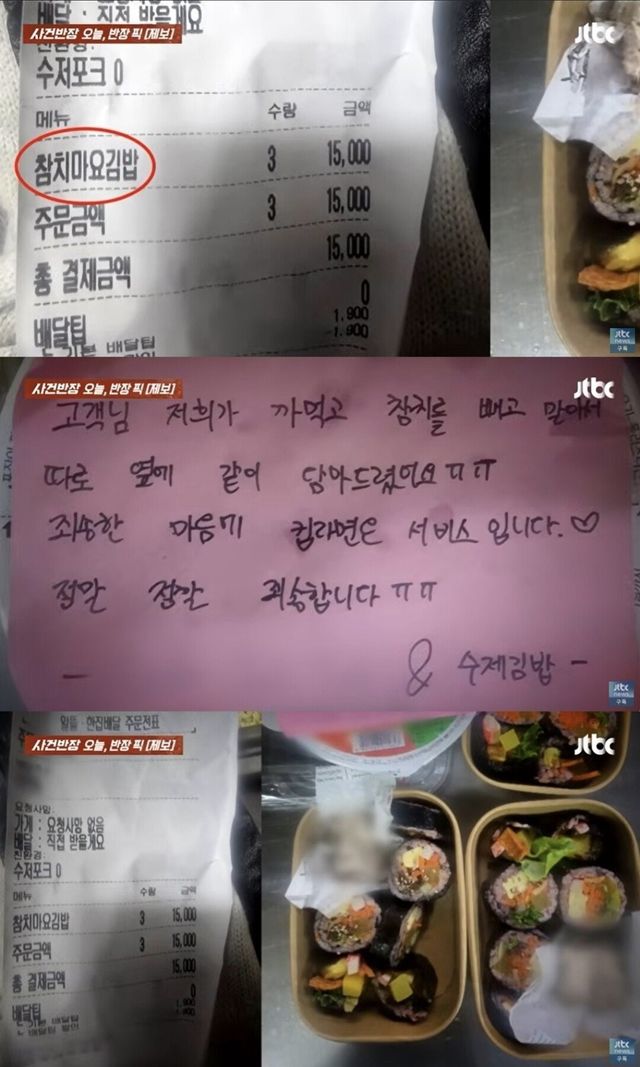 배달 : 직접 받을게요
사건반장 오늘, 반장 픽 [제보]
jtbc
수저포크 0
메뉴 수량 금액
참치마요김밥 3 15,000
주문금액 3 15,000
총 결제금액 15,000
배달팁 0
1,900
-1,900
jtbc
news
구독
사건반장 오늘, 반장 픽 [제보]
jtbc
고객님 저희가 까먹고 참치를 빼고 말아서
따로 옆에 같이 담아드렸어요ㅠㅠ
죄송한 마음에 컵라면은 서비스입니다.♡
정말 정말 죄송합니다ㅠㅠ
- & 수제김밥 -
jtbc
news
구독
알뜰·한집배달 주문전표
사건반장 오늘, 반장 픽 [제보]
jtbc
요청사항:
가게 : 요청사항 없음
배달 : 직접 받을게요
친환경:
수저포크 0
메뉴 수량 금액
참치마요김밥 3 15,000
주문금액 3 15,000
총 결제금액 15,000
배달팁 0
1,900
-1,900
jtbc
news
구독